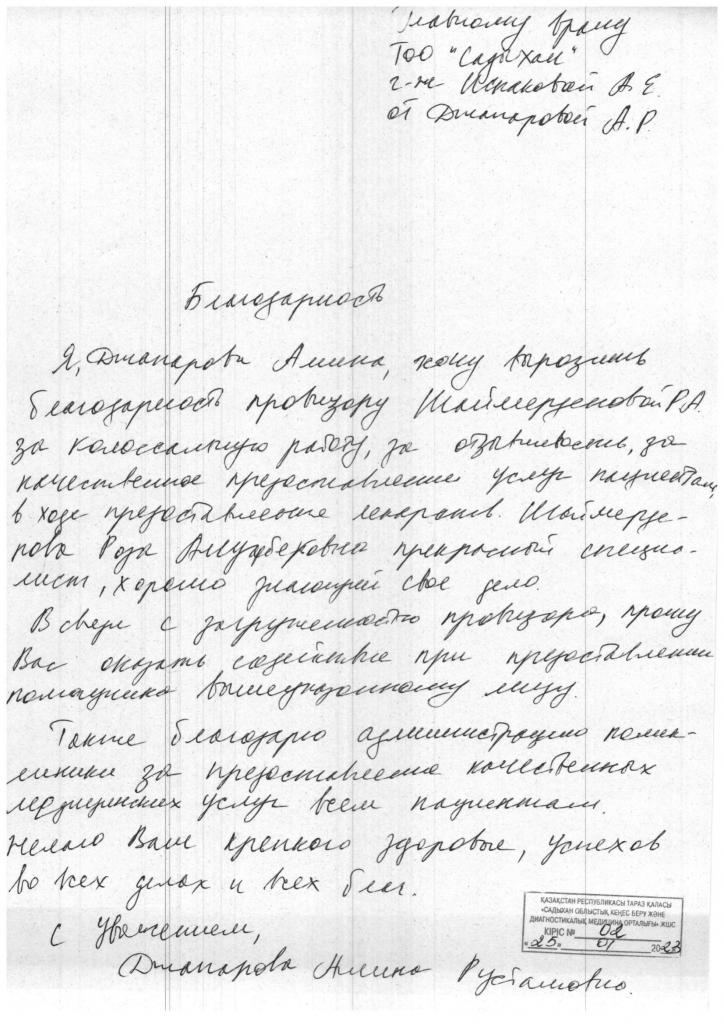 Главному врачу
ТОО "Садыхан"
г-же Искаковой А.Е.
от Джапаровой А.Р.
Благодарность
Я, Джапарова Амина, хочу выразить
благодарность провизору Шаймерденовой Р.А.
за колоссальную работу, за отзывчивость, за
качественное предоставление услуг пациентам,
в ходе предоставления лекарств. Шаймерде-
нова Роза прекрасный специа-
лист, хорошо знающий свое дело.
В связи с загруженностью провизора, прошу
Вас оказать содействие при предоставлении
помощника вышеуказанному лицу.
Также благодарю администрацию полик-
линики за предоставление качественных
медицинских услуг всем пациентам.
Желаю Вам крепкого здоровья, успехов
во всех делах и всех благ.
С уважением,
Джапарова Амина Рустамовна.
ҚАЗАҚСТАН РЕСПУБЛИКАСЫ ТАРАЗ ҚАЛАСЫ
«САДЫХАН ОБЛЫСТЫҚ КЕҢЕС БЕРУ ЖӘНЕ
ДИАГНОСТИКАЛЫҚ МЕДИЦИНА ОРТАЛЫҒЫ» ЖШС
КІРІС № 02
«25» 01 2023